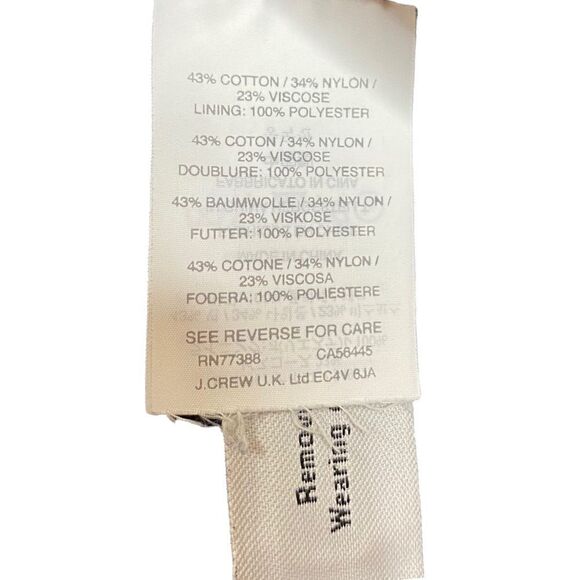 43% COTTON / 34% NYLON /
23% VISCOSE
LINING: 100% POLYESTER
43% COTON / 34% NYLON /
23% VISCOSE
DOUBLURE: 100% POLYESTER
FABBRICATO IN CINA
43% BAUMWOLLE / 34% NYLON /
23% VISKOSE
FUTTER: 100% POLYESTER
MADE IN CHINA
43% COTONE / 34% NYLON /
23% VISCOSA
FODERA: 100% POLIESTERE
SEE REVERSE FOR CARE
RN77388 CA56445
J.CREW U.K. Ltd EC4V 6JA
Wearing